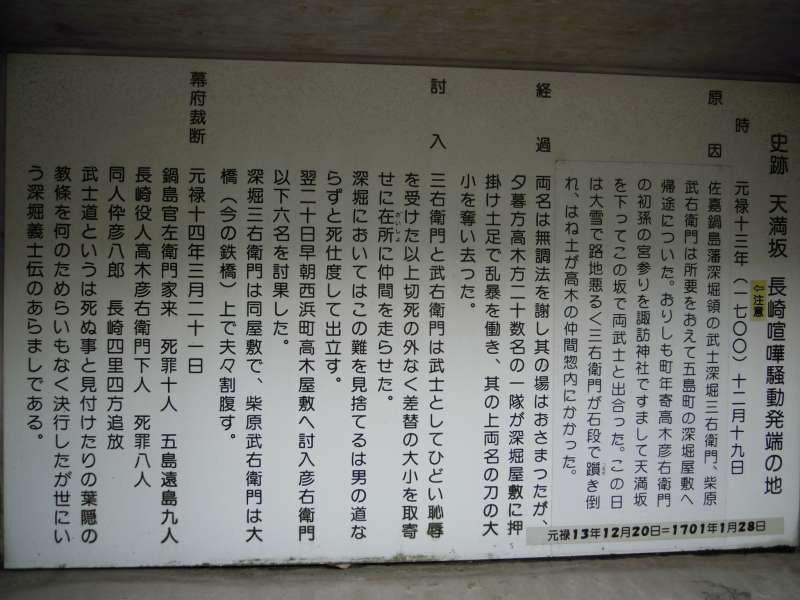 史跡 天満坂 長崎喧嘩騒動発端の地
⇦注意
時 元禄十三年(一七〇〇)十二月十九日
原因 佐嘉鍋島藩深堀領の武士深堀三右衛門、柴原
武右衛門は所要をおえて五島町の深堀屋敷へ
帰途についた。おりしも町年寄高木彦右衛門
の初孫の宮参りを諏訪神社ですまして天満坂
を下ってこの坂で両武士と出合った。この日
は大雪で路地悪るく三右衛門が石段で躓き倒
れ、はね土が高木の仲間惣内にかかった。
元禄13年12月20日=1701年1月28日
経過 両名は無調法を謝し其の場はおさまったが、
夕暮方高木方二十数名の一隊が深堀屋敷に押
掛け土足で乱暴を働き、其の上両名の刀の大
小を奪い去った。
討入 三右衛門と武右衛門は武士としてひどい恥辱
を受けた以上切死の外なく差替の大小を取寄
せに在所に仲間を走らせた。
ざいしょ
深堀においてはこの難を見捨てるは男の道な
らずと死仕度して出立す。
翌二十日早朝西浜町高木屋敷へ討入彦右衛門
以下六名を討果した。
深堀三右衛門は同屋敷で、柴原武右衛門は大
橋(今の鉄橋)上で夫々割腹す。
幕府裁断 元禄十四年三月二十一日
鍋島官左衛門家来 死罪十人 五島遠島九人
長崎役人高木彦右衛門下人 死罪八人
同人伜彦八郎 長崎四里四方追放
武士道というは死ぬ事と見付けたりの葉隠の
教條を何のためらいもなく決行したが世にい
う深堀義士伝のあらましである。